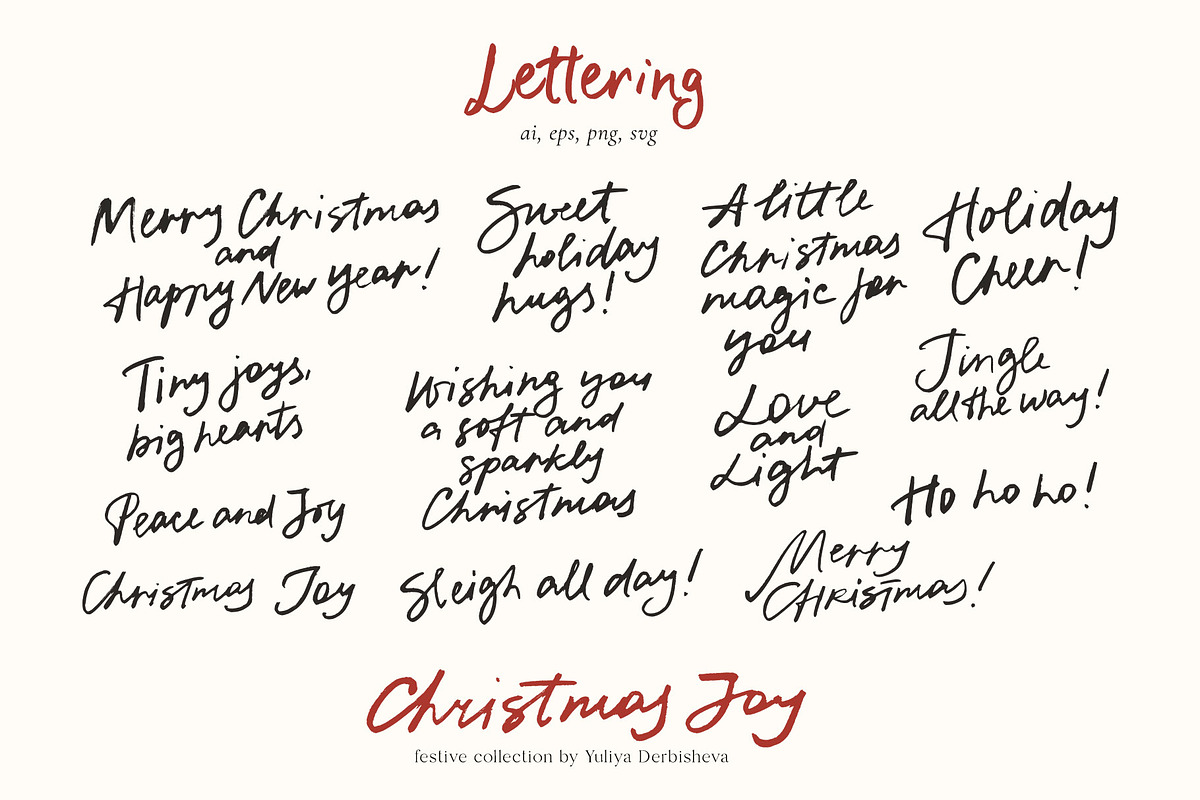 Lettering
ai, eps, png, svg
Merry Christmas
and
Happy New Year!
Sweet
holiday
hugs!
A little
Christmas
magic for
you
Holiday
Cheer!
Tiny joys,
big hearts
Wishing you
a soft and
sparkly
Christmas
Love
and
Light
Jingle
all the way!
Peace and Joy
Ho ho ho!
Christmas Joy
Sleigh all day!
Merry
CHRistmas!
Christmas Joy
festive collection by Yuliya Derbisheva